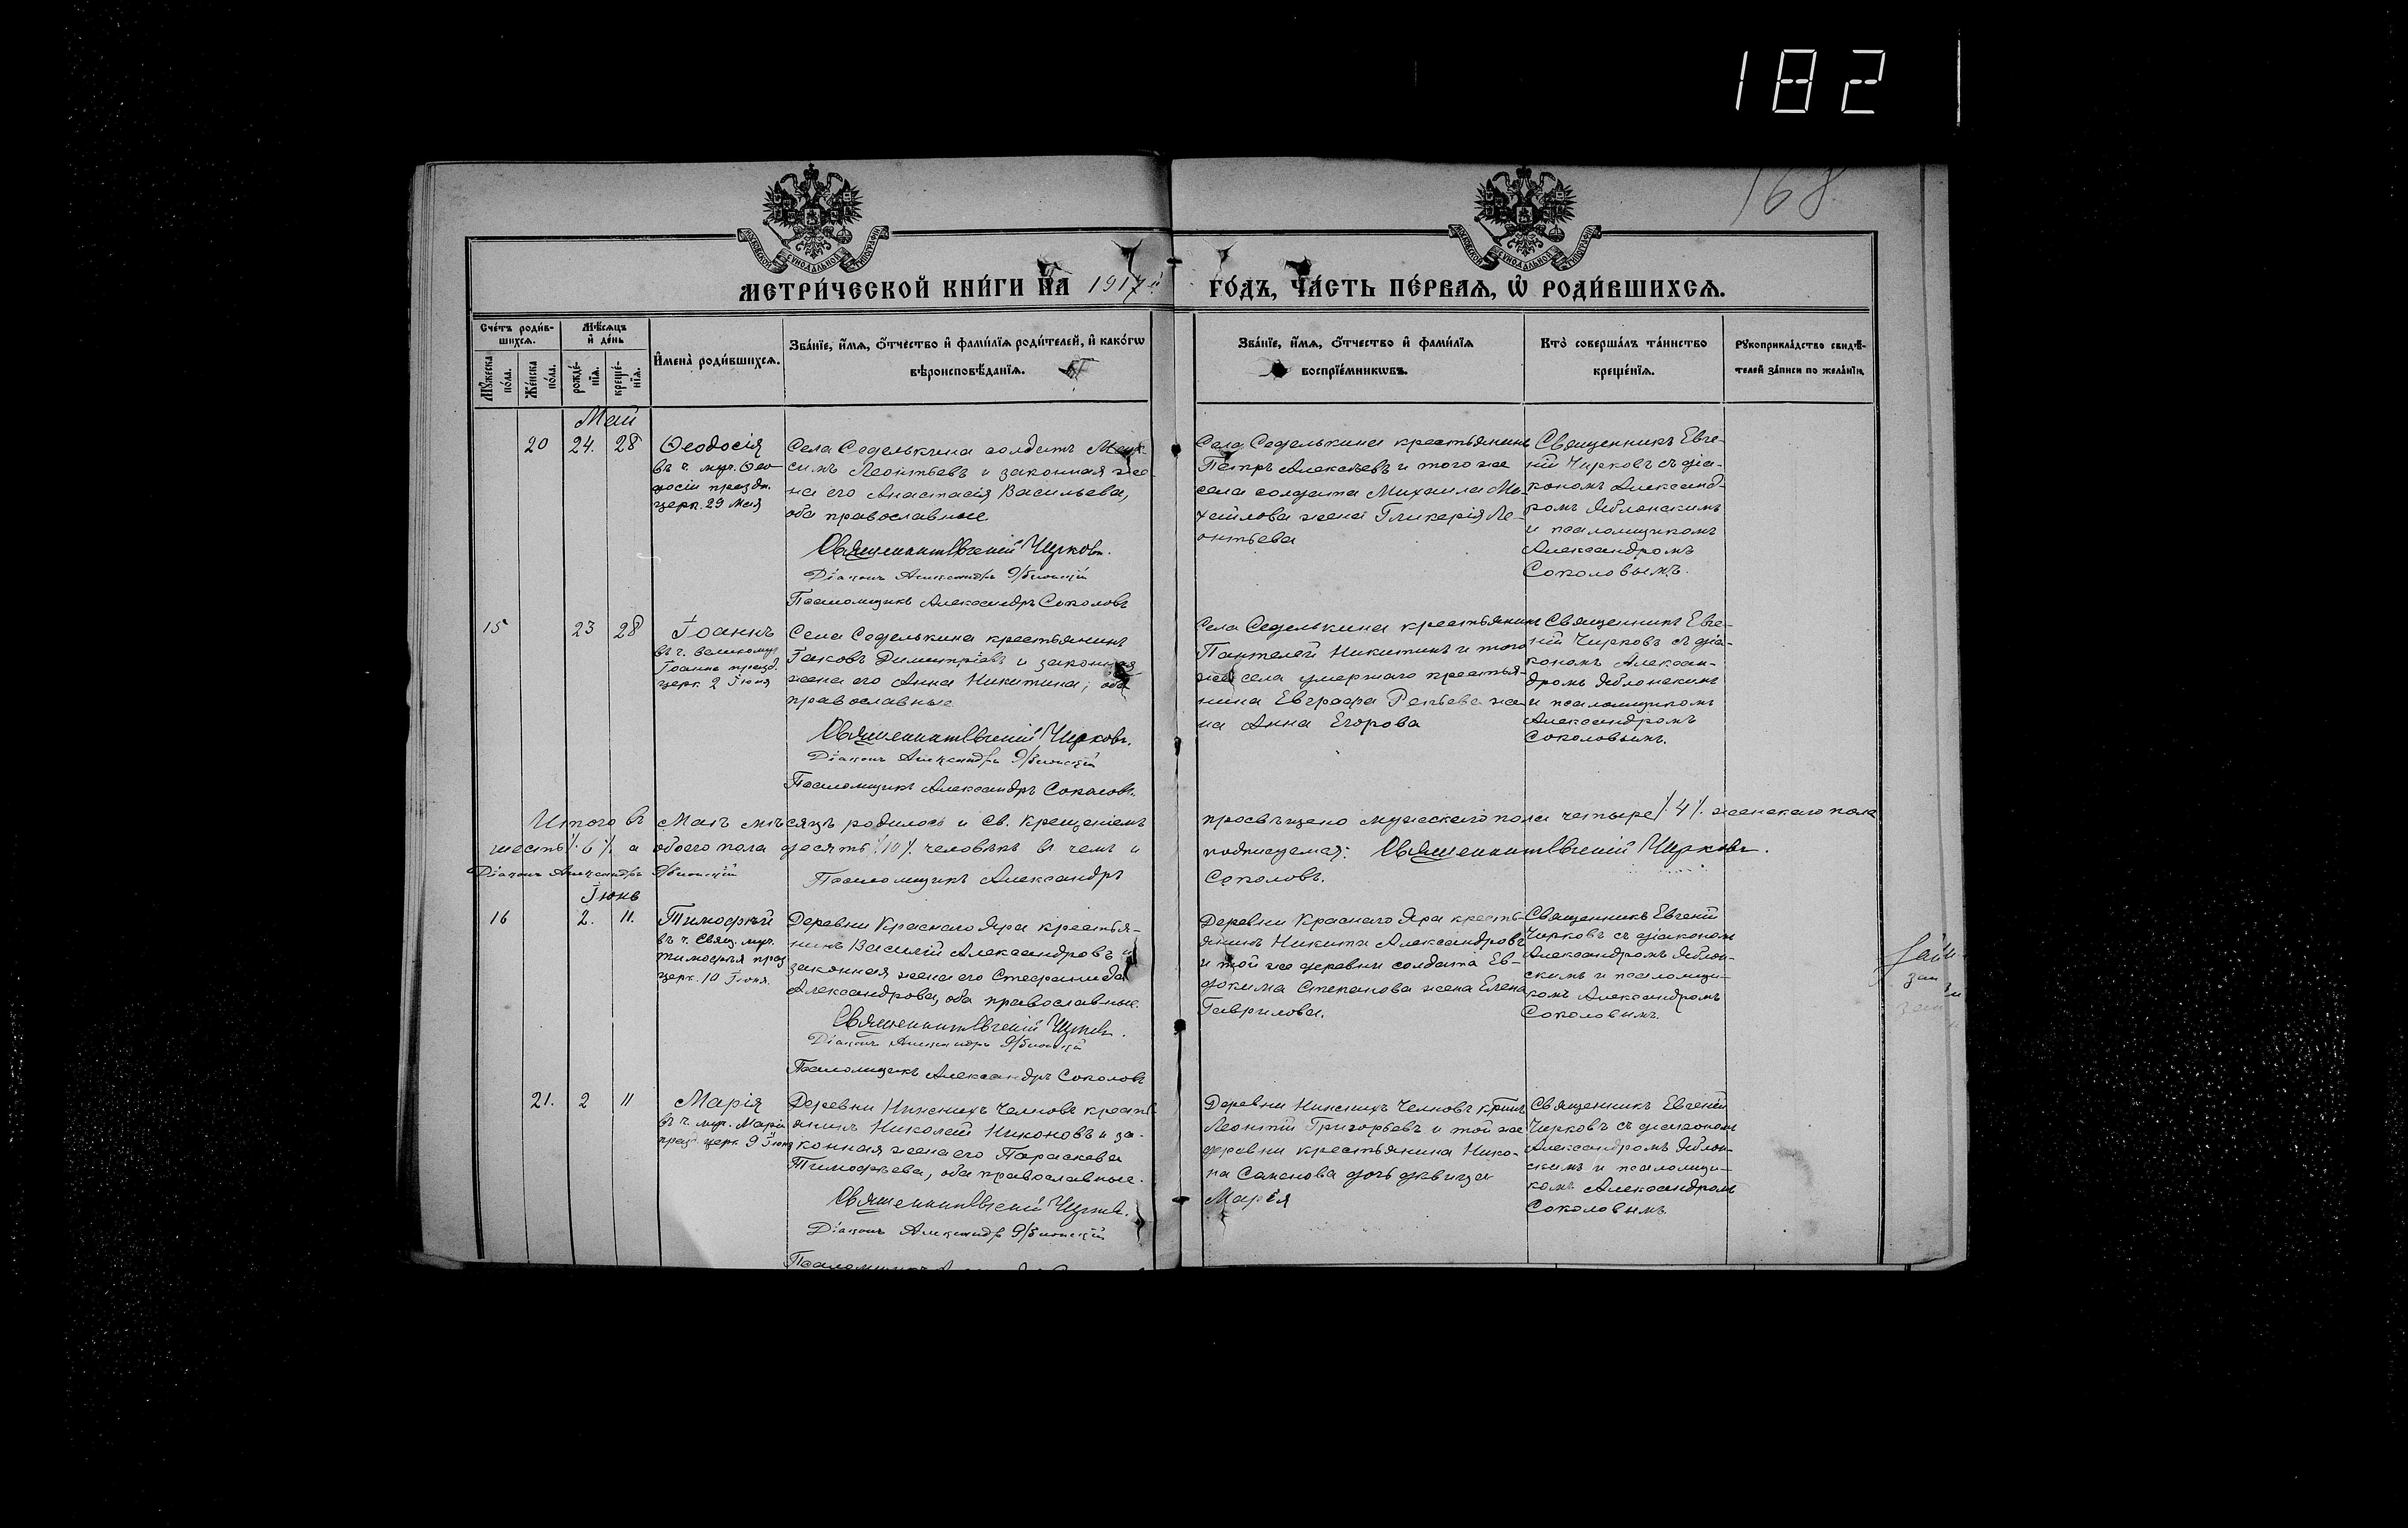 182
168
МОСКОВСКОЙ СѴНОДАЛЬНОЙ ТИПОГРАФІИ
МОСКОВСКОЙ СѴНОДАЛЬНОЙ ТИПОГРАФІИ
МЕТРИ́ЧЕСКОЙ КНИ́ГИ НА 1917й ГО́ДЪ, ЧА́СТЬ ПЕ́РВАѦ, Ѡ РОДИ́ВШИХСѦ.
Сче́тъ роди́в-
шихсѧ.
Мꙋжеска по́ла.
Же́нска по́ла.
Мѣ́сѧцъ
и де́нь
рожде́-нїѧ.
креще́-нїѧ.
И҆мена̀ роди́вшихсѧ.
Зва́нїе, и҆́мѧ, ѻ҆́тчество и҆ фами́лїѧ роди́телей, и҆ како́гѡ
вѣроисповѣ́данїѧ.
Зва́нїе, и҆́мѧ, ѻ҆́тчество и҆ фами́лїѧ
воспрїе́мникѡвъ.
Кто̀ соверша́лъ та́инство
креще́нїѧ.
Рꙋкоприкла́дство свидѣ́-
телей за́писи по жела́нїю.
Май
20 24. 28
Ѳеодосія
въ ч. муч. Ѳео-
досіи праздн.
церк. 29 Мая
Села Седелькина солдатъ Мак-
симъ Леонтьевъ и законная же-
на его Анастасія Васильева,
оба православные.
Священникъ Евгеній Чирковъ.
Діаконъ Александръ Яблонскій
Псаломщикъ Александръ Соколовъ
Села Седелькина крестьянинъ
Петръ Алексѣевъ и того же
села солдата Михаила Ми-
хайлова жена Гликерія Ле-
онтьева
Священникъ Евге-
ній Чирковъ съ діа-
кономъ Александ-
ромъ Яблонскимъ
и псаломщикомъ
Александромъ
Соколовымъ.
15 23 28
Іоаннъ
въ ч. великомуч.
Іоанна празд.
церк. 2 Іюня
Села Седелькина крестьянинъ
Іаковъ Димитріевъ и законная
жена его Анна Никитина, оба
православные
Священникъ Евгеній Чирковъ.
Діаконъ Александръ Яблонскій
Псаломщикъ Александръ Соколовъ.
Села Седелькина крестьянинъ
Пантелей Никитинъ и того
же села умершаго крестья-
нина Евграфа жe-
на Анна Егорова
Священникъ Евге-
ній Чирковъ съ діа-
кономъ Алексан-
дромъ Яблонскимъ
и псаломщикомъ
Александромъ
Соколовымъ.
Итого въ Маѣ мѣсяцѣ родилось и св. крещеніемъ просвѣщено мужескаго пола четыре /.4./ женскаго пола
шесть /.6./, а обоего пола десять /.10./ человѣкъ въ чемъ и подписуемся: Священникъ Евгеній Чирковъ.
Діаконъ Александръ Яблонскій Псаломщикъ Александръ Соколовъ.
Іюнь
16 2. 11.
Тимоѳей
въ ч. свящ. муч.
Тимоѳея праз
церк. 10 Іюня.
Деревни Краснаго Яра крестья-
нинъ Василій Александровъ и
законная жена его Стефанида
Александрова, оба православные.
Священникъ Евгеній Чирковъ.
Діаконъ Александръ Яблонскій
Псаломщикъ Александръ Соколовъ
Деревни Краснаго Яра кресть-
янинъ Никита Александровъ
и той же деревни солдата Ев-
докима Степанова жена Елена
Гаврилова.
Священникъ Евгеній
Чирковъ съ діакономъ
Александромъ Яблон-
скимъ и псаломщи-
комъ Александромъ
Соколовымъ.
21. 2 11
Марія
въ ч. муч. Маріи
празд. церк. 9 Іюня
Деревни Нижнихъ Челновъ кресть-
янинъ Николай Никоновъ и за-
конная жена его Параскева
Тимоѳеева, оба православные.
Священникъ Евгеній Чирковъ.
Діаконъ Александръ Яблонскій
Псаломщикъ
Деревни Нижнихъ Челновъ
Леонтій Григорьевъ и той же
деревни крестьянина Нико-
на Семенова дочь дѣвица
Марія
Священникъ Евгеній
Чирковъ съ діакономъ
Александромъ Яблон-
скимъ и псаломщи-
комъ Александромъ
Соколовымъ